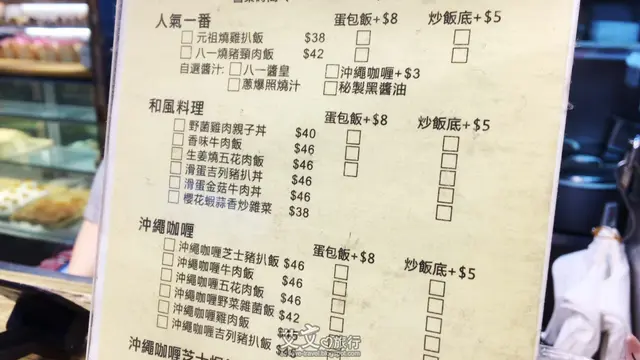 人氣一番 蛋包飯+$8 炒飯底+$5
□元祖燒雞扒飯 $38 □ □
□八一燒豬頸肉飯 $42 □ □
自選醬汁: □八一醬皇 □沖繩咖喱+$3
□蔥爆照燒汁 □秘製黑醬油
和風料理 蛋包飯+$8 炒飯底+$5
□野菌雞肉親子丼 $40 □ □
□香味牛肉飯 $46 □ □
□生姜燒五花肉飯 $46 □ □
□滑蛋吉列豬扒丼 $46 □
□滑蛋金菇牛肉丼 $46 □
□櫻花蝦蒜香炒雜菜 $38 □
沖繩咖喱 蛋包飯+$8 炒飯底+$5
□沖繩咖喱芝士豬扒飯 $46 □ □
□沖繩咖喱牛肉飯 $46 □ □
□沖繩咖喱五花肉飯 $46 □ □
□沖繩咖喱野菜雜菌飯 $42 □ □
□沖繩咖喱雞肉飯 □ □
□沖繩咖喱吉列豬扒飯
沖繩咖喱芝士
艾文の旅行